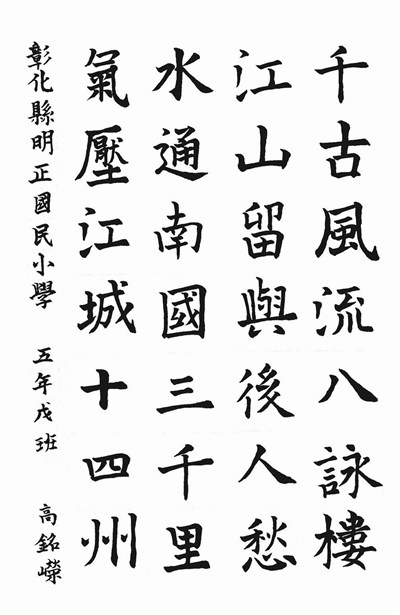 千古風流八詠樓
江山留與後人愁
水通南國三千里
氣壓江城十四州
彰化縣明正國民小學 五年戊班 高銘嶸